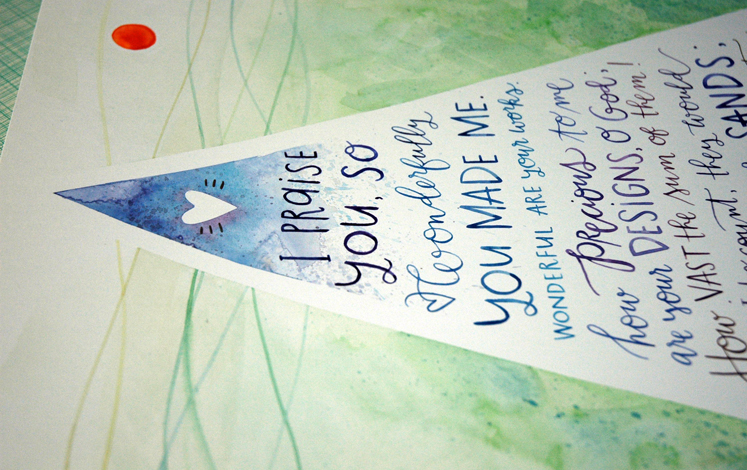 I PRAISE
YOU, SO
Wonderfully
YOU MADE ME.
WONDERFUL ARE your works.
how precious to me
are your DESIGNS, O God;
How VAST the sum of them!
count, they would
SANDS,